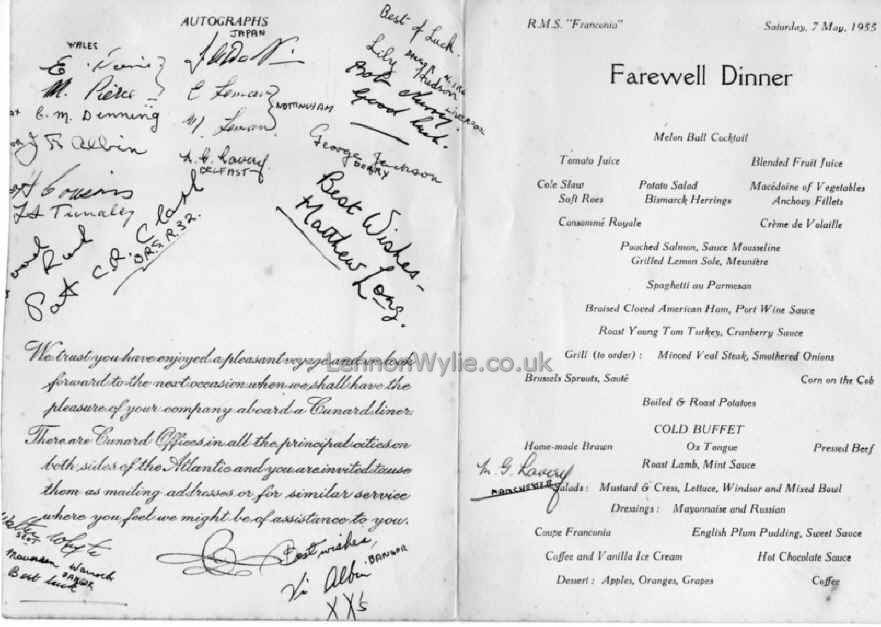 AUTOGRAPHS
JAPAN
WALES
M. Pierce
E. Leman
M. Leman
NOTTINGHAM
C. M. Denning
J R Albin
M. G. Lavery
BELFAST
Cousins
Best of Luck.
Lily Hudson
Good luck.
George Jackson
DERRY
Best Wishes-
Matthew Long.
Good Luck
Pat
We trust you have enjoyed a pleasant voyage and we look
forward to the next occasion when we shall have the
pleasure of your company aboard a Cunard liner.
There are Cunard Offices in all the principal cities on
both sides of the Atlantic and you are invited to use
them as mailing addresses or for similar service
where you feel we might be of assistance to you.
Whyte
Maureen
Best luck
Best wishes,
BANGOR
Vi Albin
XX's
LennonWylie.co.uk
R.M.S. "Franconia"
Saturday, 7 May, 1955
Farewell Dinner
Melon Ball Cocktail
Tomato Juice Blended Fruit Juice
Cole Slaw Potato Salad Macédoine of Vegetables
Soft Roes Bismarck Herrings Anchovy Fillets
Consommé Royale Crème de Volaille
Poached Salmon, Sauce Mousseline
Grilled Lemon Sole, Meunière
Spaghetti au Parmesan
Braised Cloved American Ham, Port Wine Sauce
Roast Young Tom Turkey, Cranberry Sauce
Grill (to order) : Minced Veal Steak, Smothered Onions
Brussels Sprouts, Sauté Corn on the Cob
Boiled & Roast Potatoes
COLD BUFFET
Home-made Brawn Ox Tongue Pressed Beef
Roast Lamb, Mint Sauce
M. G. Lavery
MANCHESTER
Salads : Mustard & Cress, Lettuce, Windsor and Mixed Bowl
Dressings : Mayonnaise and Russian
Coupe Franconia English Plum Pudding, Sweet Sauce
Coffee and Vanilla Ice Cream Hot Chocolate Sauce
Dessert : Apples, Oranges, Grapes Coffee